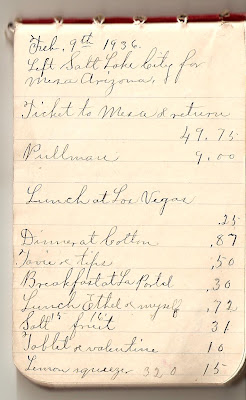 Feb. 9th 1936.
Left Salt Lake City for
Mesa Arizona,
Ticket to Mesa & return
49.75
Pullman 9.00
Lunch at Los Vegas
.25
Dinner at Colton .87
Taxie & tips .50
Breakfast at La Portal .30
Lunch Ethel & myself .72
Salt 15 fruit 16 31
Tablet & valentine 10
Lemon squeezer 320 15